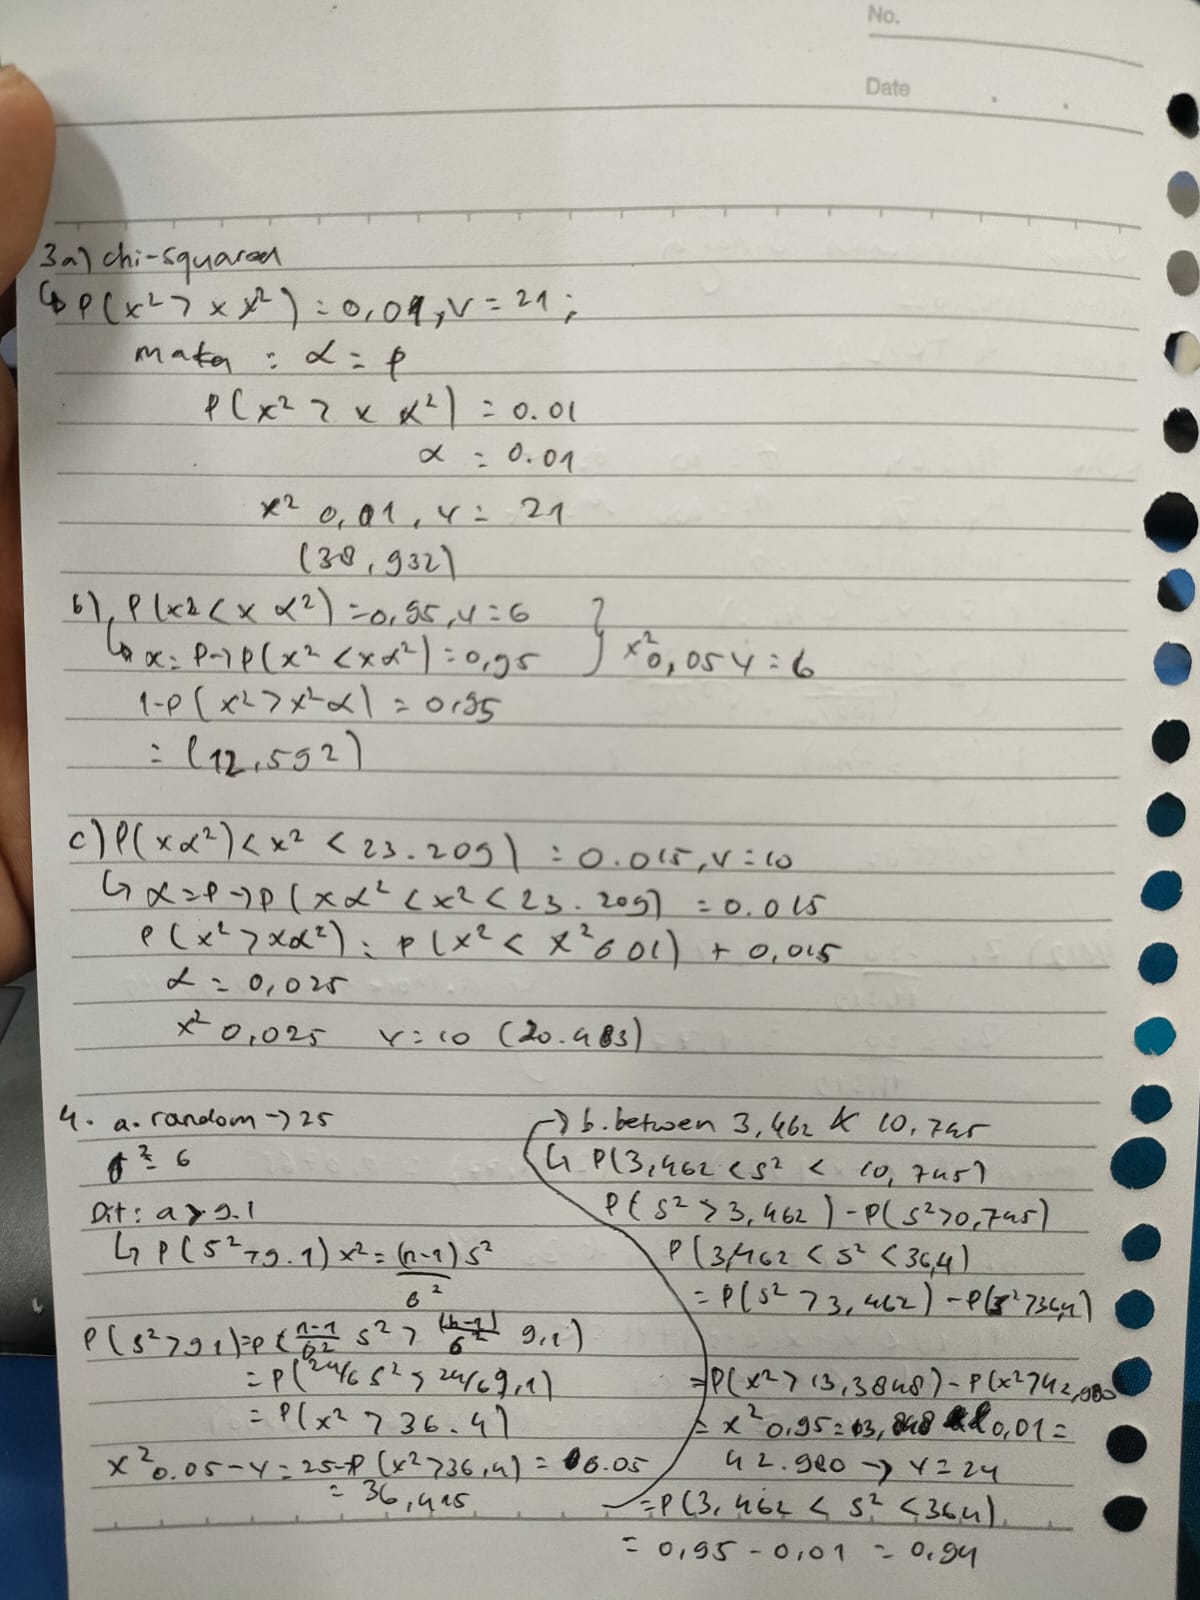 No.
Date
3a) chi-squared
↳ P(x² > x x²) = 0,01, v = 21;
maka : α = P
P(x² > x α²) = 0.01
α = 0.01
x² 0,01, v = 21
(38,932)
b) P(x² < x α²) = 0,95, v = 6
↳ α = P → P(x² < xα²) = 0,95 } x² 0,05 v = 6
1-P(x² > x²α) = 0,95
= (12,592)
c) P(xα²) < x² < 23.209) = 0.015, v = 10
↳ α = P → P(xα² < x² < 23.209) = 0.015
P(x² > xα²) = P(x² < x² 0 01) + 0,015
α = 0,025
x² 0,025 v = 10 (20.483)
4. a. random → 25
σ² = 6
Dit : a > 9.1
↳ P(S² > 9.1) x² = (n-1) S² / 6²
P(S² > 9 1) = P((n-1)/6² S² > (n-1)/6² 9,1)
= P(24/6 S² > 24/6 9,1)
= P(x² > 36.4)
x² 0.05 - v = 25 → P(x² > 36,4) = 0.05
= 36,415
→ b. betwen 3,462 & 10,745
↳ P(3,462 < S² < 10,745)
P(S² > 3,462) - P(S² > 0,745)
P(3,462 < S² < 36,4)
= P(S² > 3,462) - P(S² > 36,4)
= P(x² > 13,3848) - P(x² > 42,980
= x² 0,95 = 13,848 0,01 =
42.980 → v = 24
= P(3,462 < S² < 364)
= 0,95 - 0,01 = 0,94